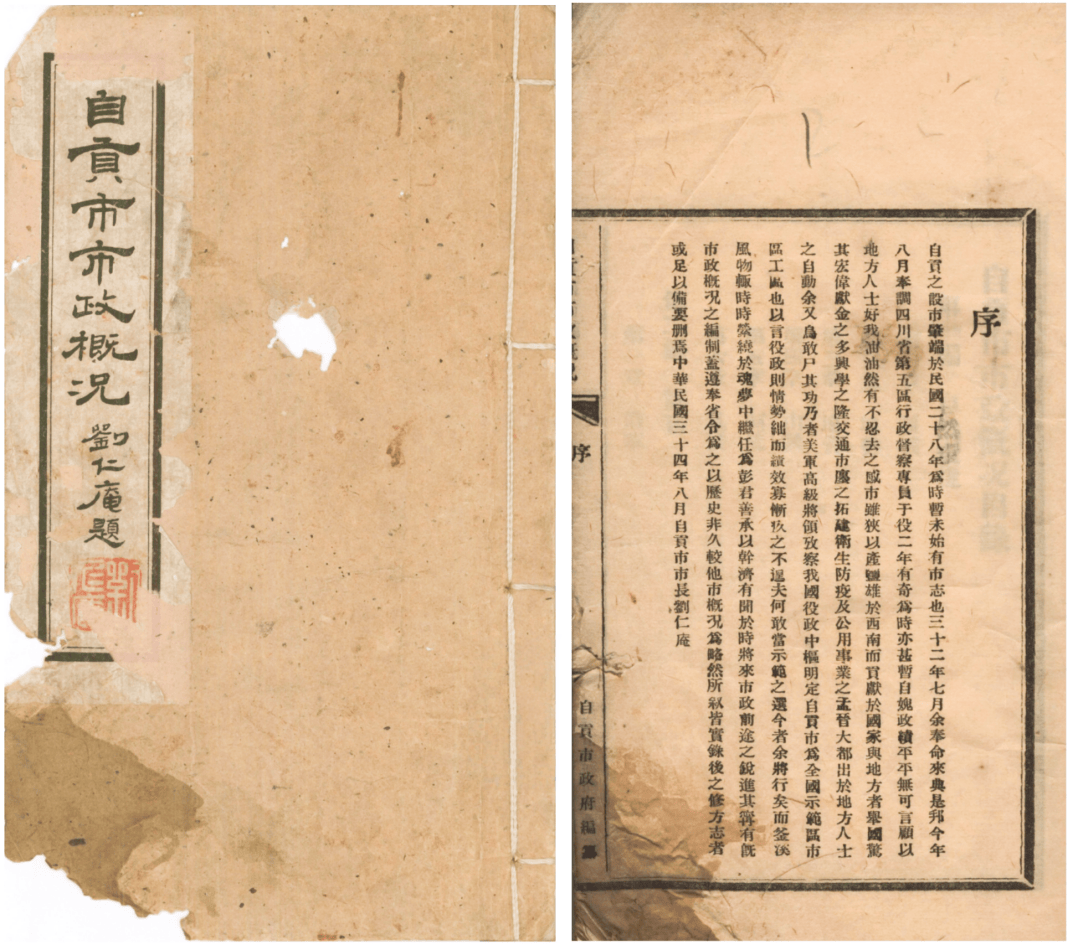 自貢市市政概況
劉仁庵題
序
自貢之設市肇端於民國二十八年爲時暫未始有市志也三十二年七月余奉命來典是邦今年
八月奉調四川省第五區行政督察專員于役二年有奇爲時亦甚暫自媿政績平平無可言顧以
地方人士好我油油然有不忍去之感市雖狹以產鹽雄於西南而貢獻於國家與地方者舉國驚
其宏偉獻金之多興學之隆交通市廛之拓建衛生防疫及公用事業之孟晉大都出於地方人士
之自動余又烏敢尸其功乃者美軍高級將領攷察我國役政中樞明定自貢市爲全國示範區市
區工區也以言役政則情勢絀而績效寡慚疚之不遑夫何敢當示範之選今者余將行矣而釜溪
風物輒時時縈繞於魂夢中繼任爲彭君善承以幹濟有聞於時將來市政前途之銳進其寗有旣
市政概況之編制蓋遵奉省令爲之以歷史非久較他市概況爲略然所叙皆實錄後之修方志者
或足以備要删焉中華民國三十四年八月自貢市市長劉仁庵
序
自貢市政府編